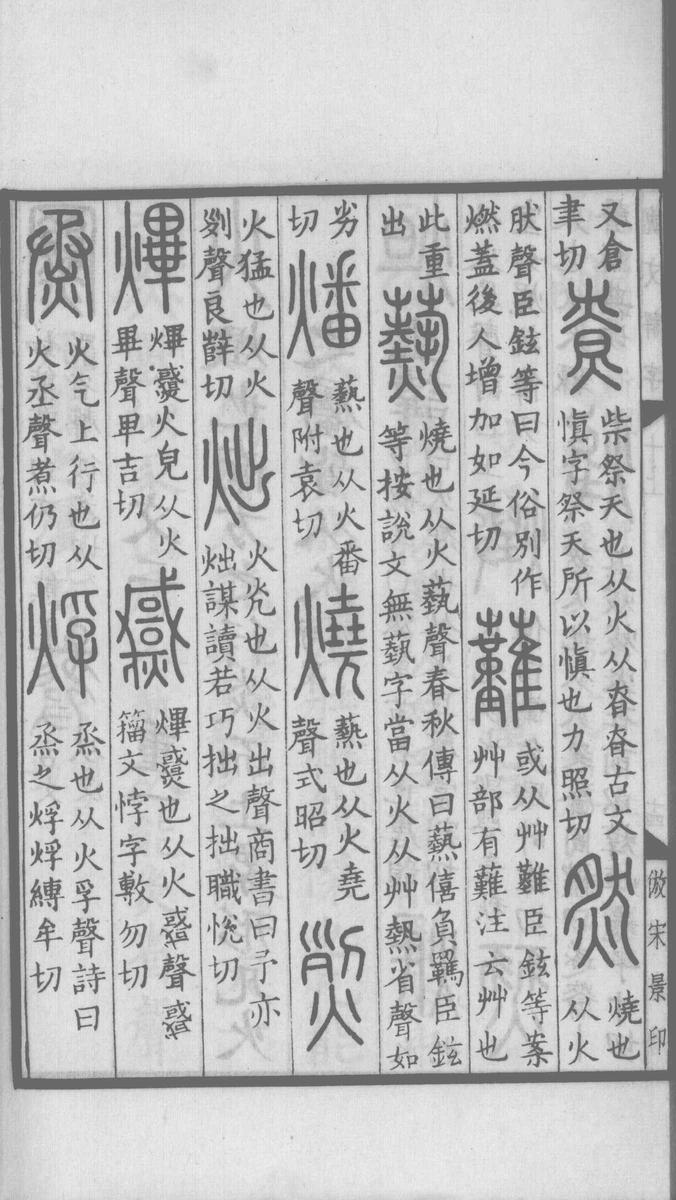 又倉
聿切
尞
柴祭天也从火从昚昚古文
愼字祭天所以愼也力照切
然
燒也
从火
肰聲臣鉉等曰今俗別作
燃蓋後人增加如延切
𧅖
或从艸難臣鉉等案
艸部有𧅖注云艸也
此重
出
爇
燒也从火蓺聲春秋傳曰爇僖負羈臣鉉
等按說文無蓺字當从火从艸熱省聲如
劣
切
燔
爇也从火番
聲附袁切
燒
爇也从火堯
聲式昭切
烈
火猛也从火
𠛱聲良辥切
炪
火光也从火出聲商書曰予亦
炪謀讀若巧拙之拙職恱切
熚
熚𤒓火皃从火
畢聲卑吉切
𤒓
熚𤒓也从火𧭥聲𧭥
籒文悖字敷勿切
烝
火气上行也从
火丞聲煮仍切
烰
烝也从火孚聲詩曰
烝之烰烰縛牟切
倣宋景印